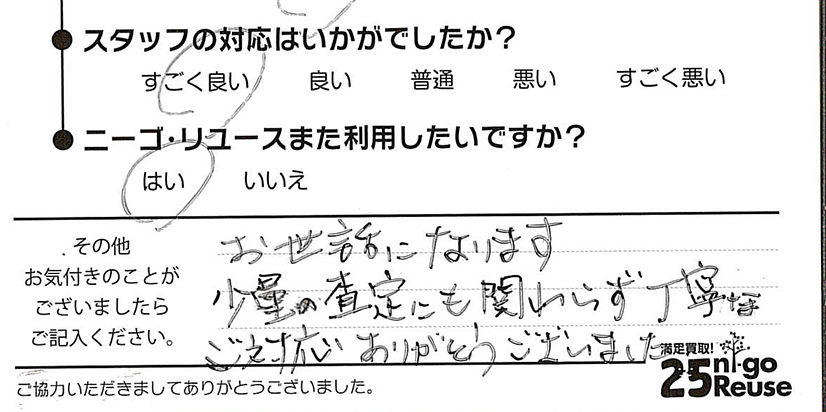 ●スタッフの対応はいかがでしたか?
すごく良い 良い 普通 悪い すごく悪い
●ニーゴ・リユースまた利用したいですか?
はい いいえ
その他
お気付きのことが
ございましたら
ご記入ください。
お世話になります
少量の査定にも関わらず丁寧な
ご対応いありがとうございました
満足買取!
25 ni-go
Reuse
ご協力いただきましてありがとうございました。